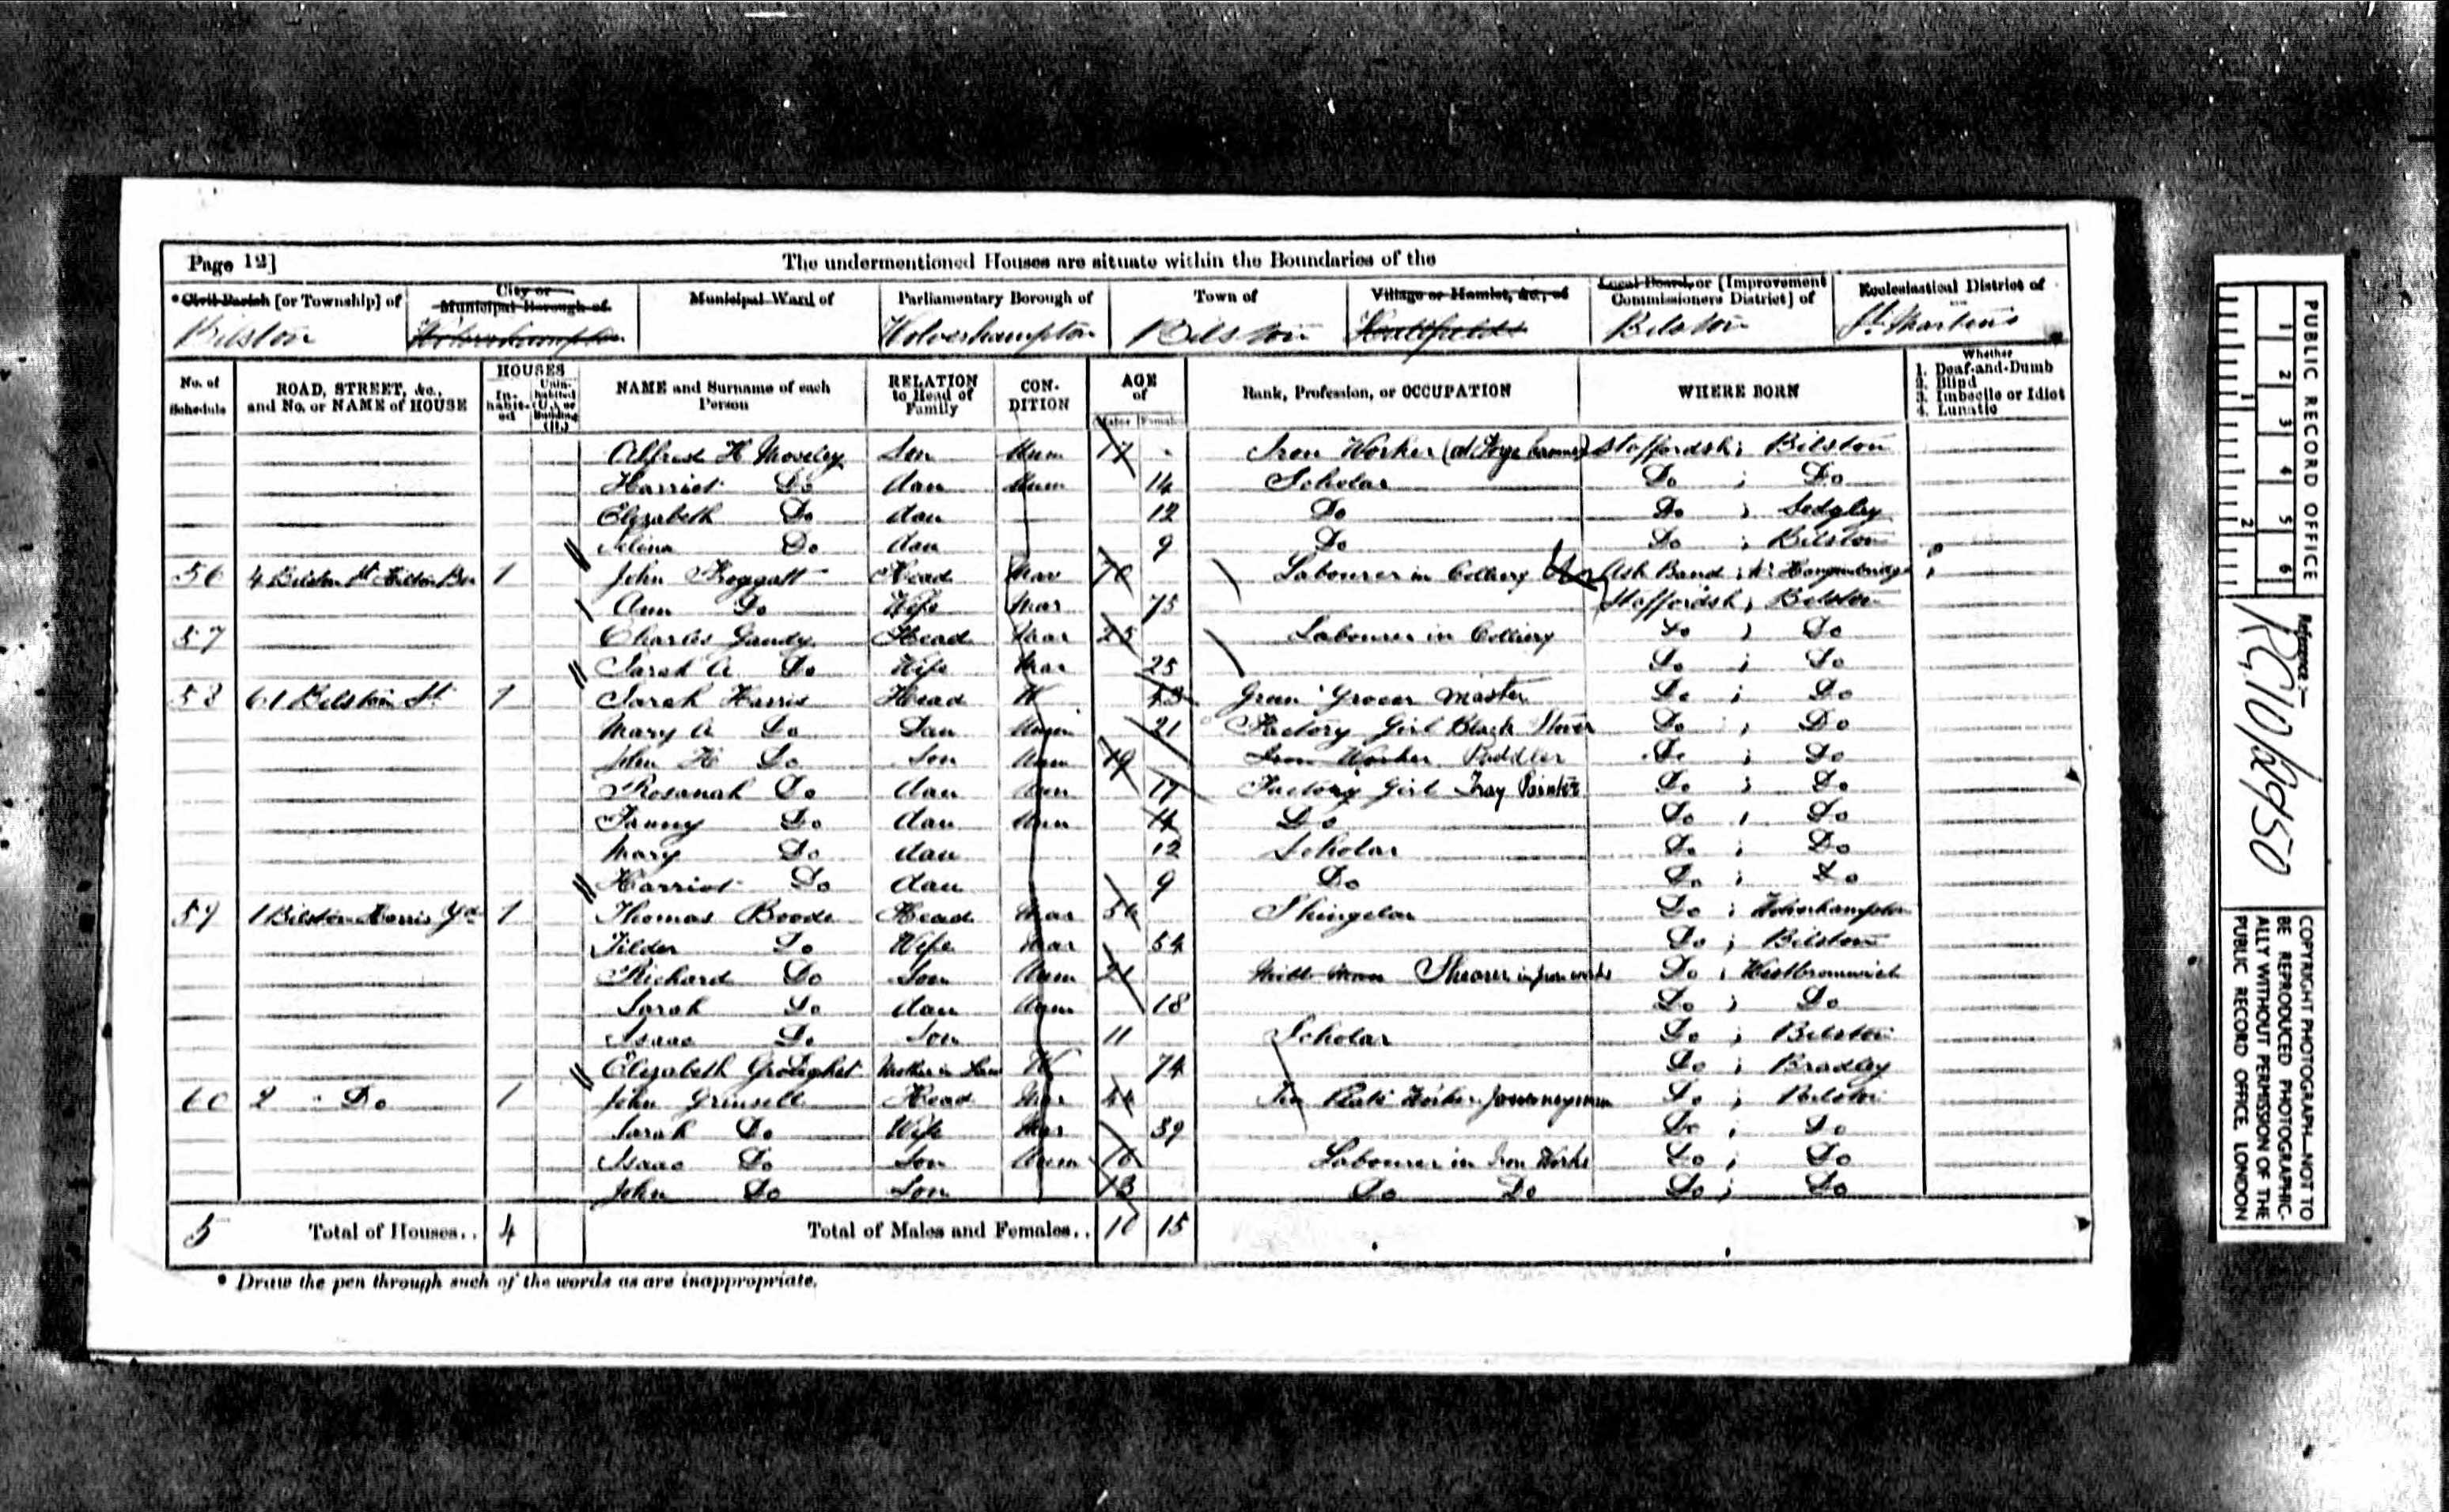 Page 12]
The undermentioned Houses are situate within the Boundaries of the
* Civil Parish [or Township] of
City or Municipal Borough of
Municipal Ward of
Parliamentary Borough of
Town of
Village or Hamlet, &c., of
Local Board, or [Improvement Commissioners District] of
Ecclesiastical District of
Bilston Wolverhampton Wolverhampton Bilston Bilston St. Martins
No. of Schedule
ROAD, STREET, &c., and No. or NAME of HOUSE
HOUSES
In-habit-ed
Unin-habited (U.), or Building (B.)
NAME and Surname of each Person
RELATION to Head of Family
CON-DITION
AGE of
Males Females
Rank, Profession, or OCCUPATION
WHERE BORN
Whether
1. Deaf-and-Dumb
2. Blind
3. Imbecile or Idiot
4. Lunatic
Alfred H Moseley Son Unm 17 Iron Worker Staffordsh ; Bilston
Harriet Do dau Unm 14 Scholar Do ; Do
Elizabeth Do dau 12 Do Do ; Sedgley
Selina Do dau 9 Do Do ; Bilston
56 4 Bilston St 1 John Froggatt Head Mar 70 Labourer in Colliery
Ann Do Wife Mar 75 Staffordsh ; Bilston
57 Charles Gandy Head Mar 25 Labourer in Colliery Do ; Do
Sarah A Do Wife Mar 25 Do ; Do
58 61 Bilston St 1 Sarah Harris Head W 53 Green Grocer Master Do ; Do
Mary A Do Dau Unm 21 Factory Girl Black Stover Do ; Do
John H Do Son Unm 19 Iron Worker Puddler Do ; Do
Rosanah Do dau Unm 17 Factory Girl Tray Painter Do ; Do
Fanny Do dau Unm 14 Do Do ; Do
Mary Do dau 12 Scholar Do ; Do
Harriet Do dau 9 Do Do ; Do
59 1 Bilston Harris Yd 1 Thomas Boode Head Mar 56 Shingelar Do ; Wolverhampton
Tilder Do Wife Mar 54 Do ; Bilston
Richard Do Son Unm 21 Mill Man Shearer in Iron works Do ; Westbromwich
Sarah Do dau Unm 18 Do ; Do
Isaac Do Son 11 Scholar Do ; Bilston
Elizabeth Mother in Law W 74 Do ; Bradley
60 2 " Do 1 John Grinsell Head Mar 44 Tin Plate Worker Journeyman Do ; Bilston
Sarah Do Wife Mar 39 Do ; Do
Isaac Do Son Unm Labourer in Iron Works Do ; Do
John Do Son 13 Do Do Do ; Do
5 Total of Houses.. 4 Total of Males and Females.. 10 15
* Draw the pen through such of the words as are inappropriate.
PUBLIC RECORD OFFICE
1 2 3 4 5 6
1 2
Reference :-
RG10/2950
COPYRIGHT PHOTOGRAPH—NOT TO
BE REPRODUCED PHOTOGRAPHIC-
ALLY WITHOUT PERMISSION OF THE
PUBLIC RECORD OFFICE, LONDON